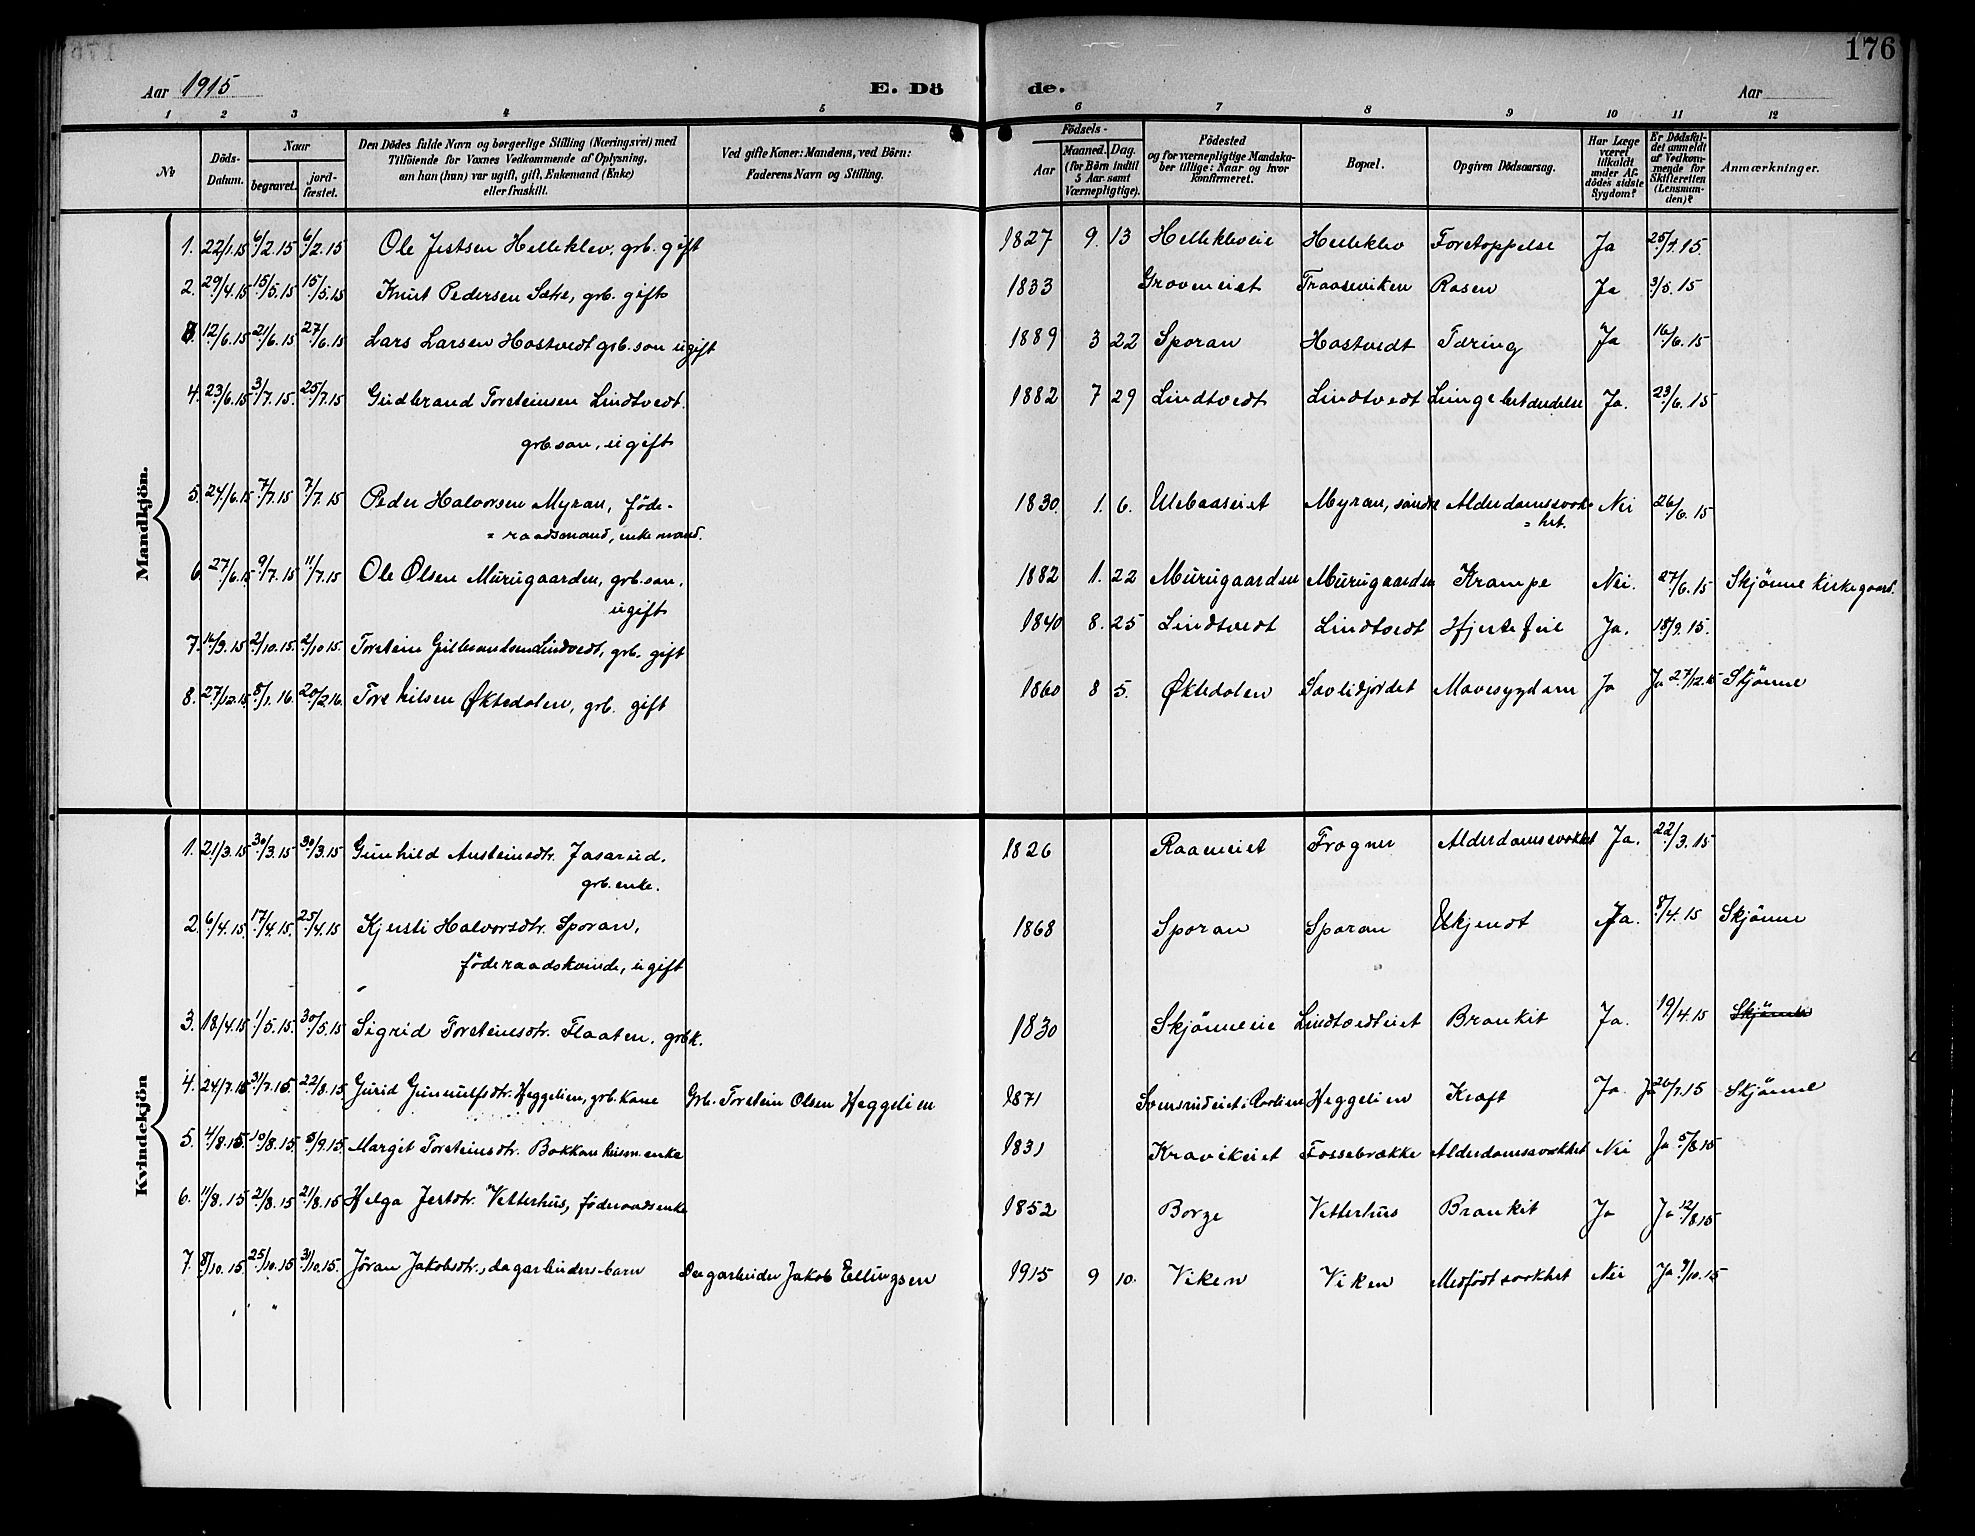 176
Aar 1915 E. Dö de. Aar
1 2 3 4 5 6 7 8 9 10 11 12
No
Döds-Datum.
Naar
begravet.
jordfæstet.
Den Dödes fulde Navn og borgerlige Stilling (Næringsvei) med
Tilföiende for Voxnes Vedkommende af Oplysning,
om han (hun) var ugift, gift, Enkemand (Enke)
eller fraskilt.
Ved gifte Koner: Mandens, ved Börn:
Faderens Navn og Stilling.
Födsels-
Aar
Maaned. Dag.
(for Börn indtil
5 Aar samt
Værnepligtige).
Födested
og for værnepligtige Mandskaber tillige: Naar og hvor
konfirmeret.
Bopæl.
Opgiven Dödsaarsag.
Har Læge
været
tilkaldt
under Afdödes sidste
Sygdom?
Er Dödsfaldet anmeldt
af Vedkommende for
Skifteretten
(Lensmanden)?
Anmærkninger.
Mandkjön.
1. 22/1.15 6/2.15 6/2.15 Ole Jestsen Helleklev, grb. gift 1827 9. 13 Helleklveie Helleklev Foretoppelse Ja 25/1.15.
2. 29/4.15 15/5.15 15/5.15 Knut Pedersen Sæte, grb. gift 1833 Groveneiet Traaseviken Rosen Ja 3/5.15
3. 12/6.15 21/6.15 27/6.15 Lars Larsen Hostvedt grb. søn ugift 1889 3 22 Sporan Hostvedt Tæring Ja 16/6.15
4. 23/6.15 3/7.15. 25/7.15 Gudbrand Torsteinsen Lindtvedt. 1882 7 29 Lindtvedt Lindtvedt Lungebetændelse Ja. 23/6.15
grb. søn, ugift
5. 24/6.15 7/7.15 7/7.15 Peder Halvorsen Myran, föde- 1830. 1. 6. Ulebaaseiet Myran, søndre Alderdomssvak- Nei 26/6.15
= raadsmand, enkemand. = het.
6. 27/6.15 9/7.15 11/7.15 Ole Olsen Murugaarden, grb. søn, 1882 1. 22 Murugaarden Murugaarden Krampe Nei. 27/6.15 Skjönne kirkegaard.
ugift
7. 16/9.15 2/10.15. 2/10.15. Torstein Gulbrandsen Lindtvedt, grb. gift 1840 8. 25 Lindtvedt Lindtvedt Hjertefeil Ja. 18/9.15.
8. 27/12.15 8/1.16. 20/2.16. Tore Nilsen Øktedalen, grb. gift 1860 8 5. Øktedalen Savlidjordet Mavesygdom Ja Ja 27/12.15 Skjönne
Kvindekjön
1. 21/3.15 30/3.15 30/3.15 Gunhild Austeinsdtr. Jasarud. 1826 Raaeneiet Frogner Alderdomssvakhet Ja. 22/3.15
grb. enke.
2. 6/4.15. 17/4.15. 25/4.15 Kjersti Halvorsdtr. Sporan, 1868 Sporan Sporan Ukjendt Ja. 8/4.15 Skjönne
föderaadskvinde, ugift
3. 18/4.15 1/5.15. 30/5.15 Sigrid Torsteinsdtr. Flaaten. grbk. 1830 Skjönneeie Lindtvedteiet Bronkit Ja. 19/4.15 Skjönne
4. 24/7.15 31/7.15 22/8.15 Gurid Gunnulfsdtr. Heggelien, grb. kone Grb. Torstein Olsen Heggelien 1871 Heggelien Kræft Ja. Ja 26/7.15 Skjönne
5. 4/8.15. 10/8.15. 5/9.15. Margit Torsteinsdtr. Bakkan husm. enke 1831 Kravikeiet Fossebrække Alderdomssvakhet Nei Ja 5/8.15
6. 11/8.15 21/8.15 21/8.15 Helga Jestdtr. Vetterhus, föderaadsenke 1852 Borge Vetterhus Bronkit Ja Ja 12/8.15
7. 8/10.15. 25/10.15 31/10.15. Jöran Jakobsdtr., dagarbeidersbarn Dagarbeider Jakob Ellingsen 1915 9 10. Viken Viken Medfödt svakhet Nei Ja 9/10.15